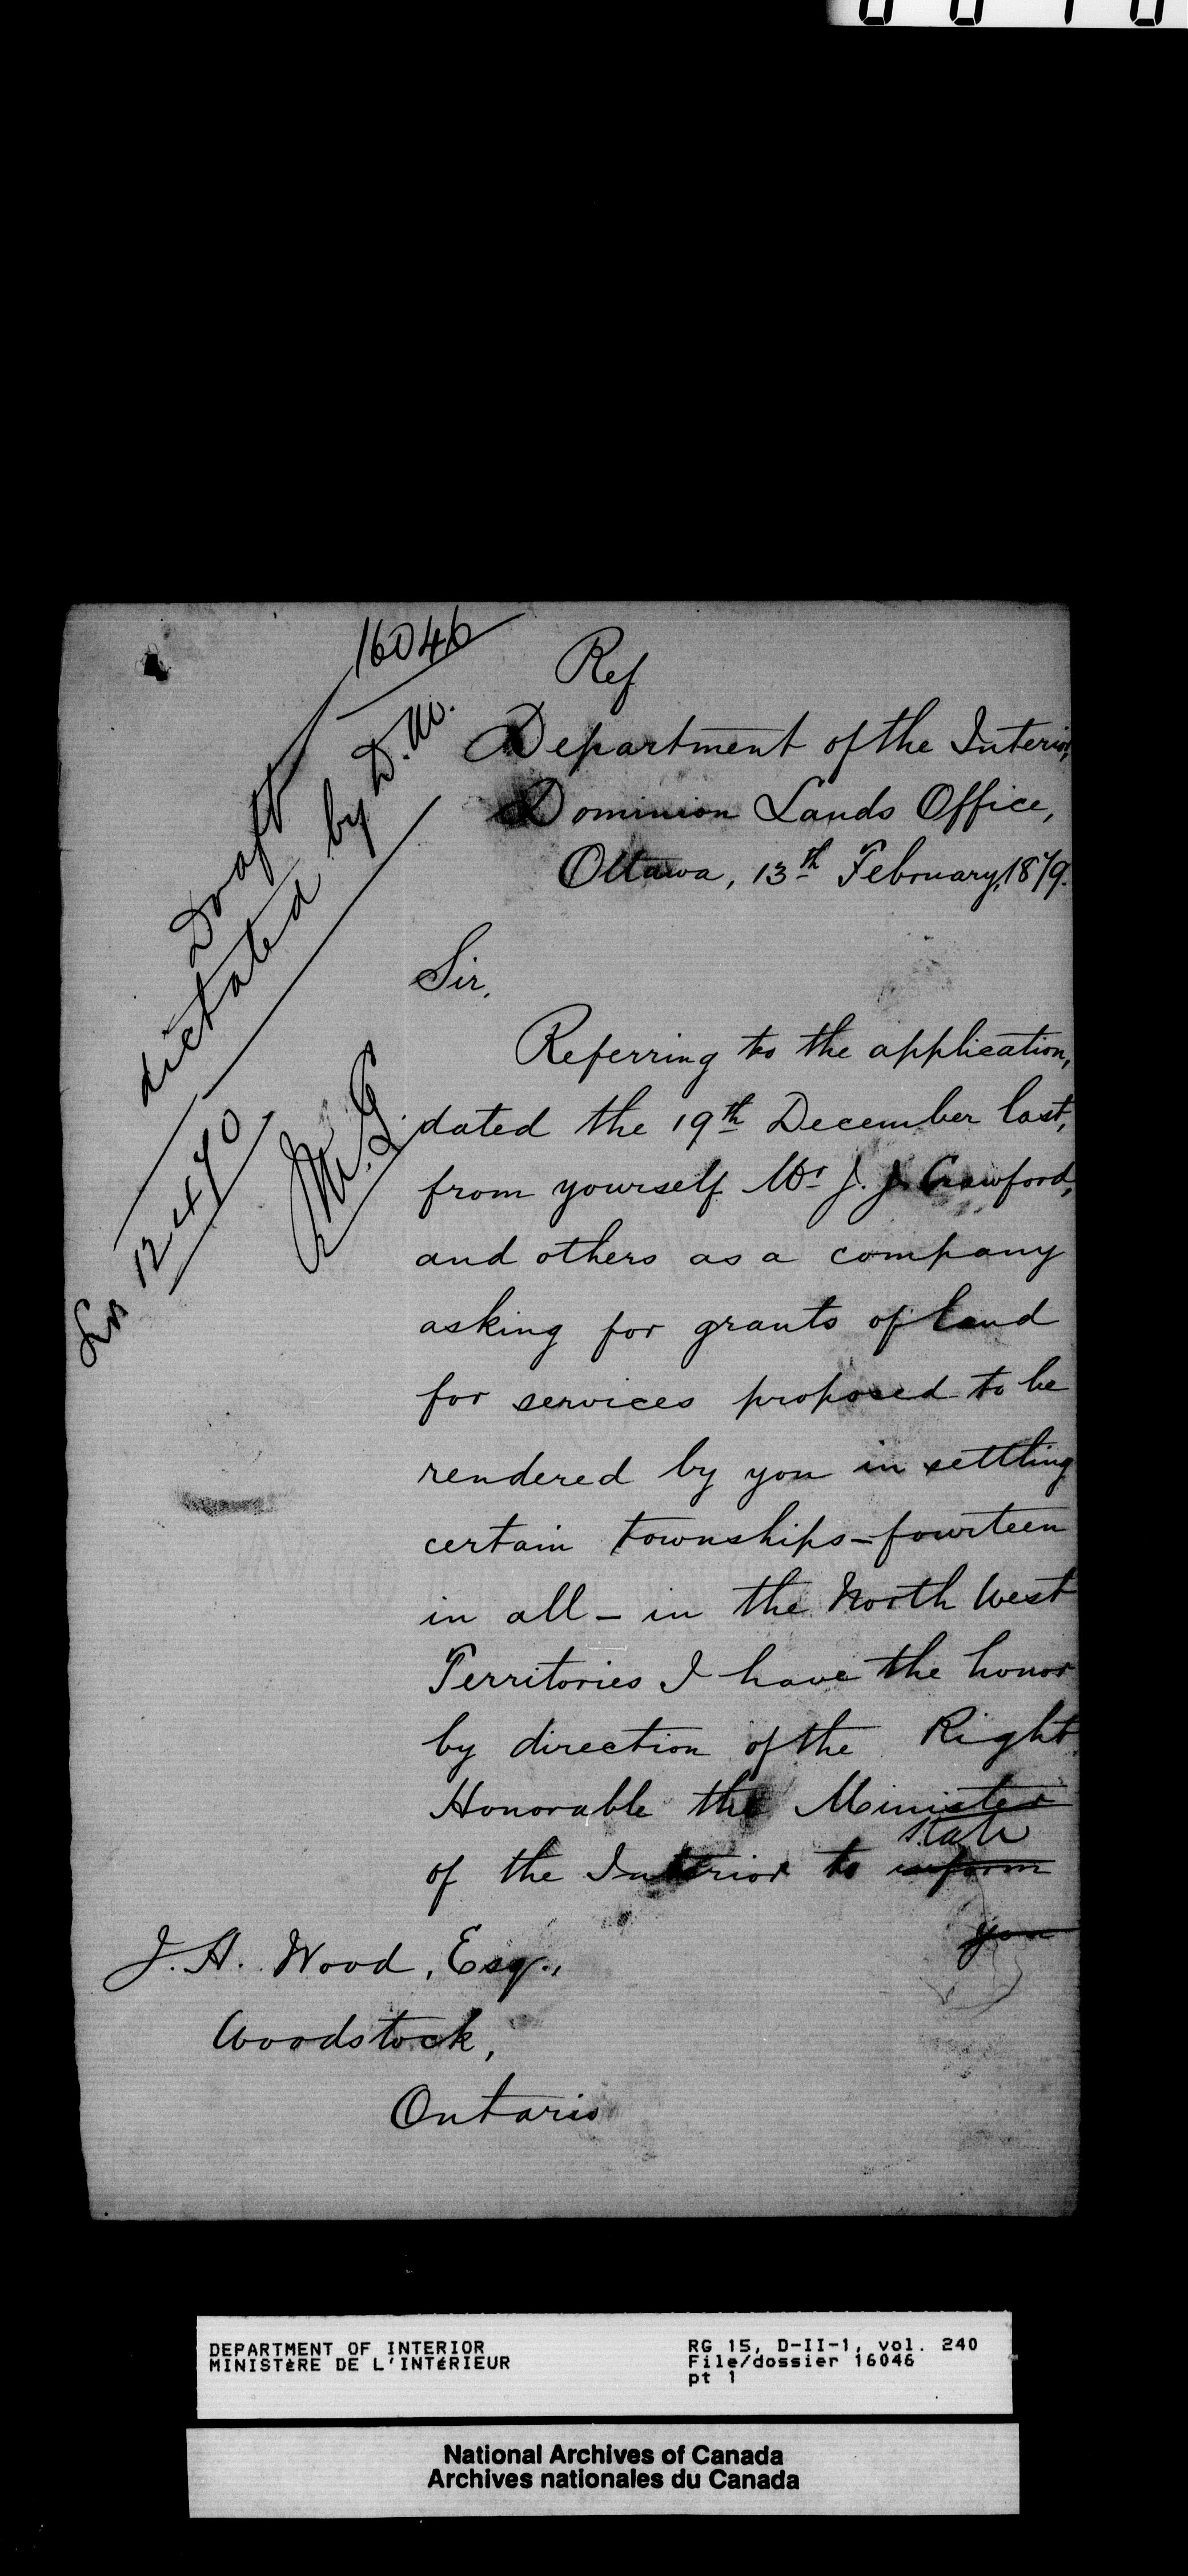 16046
Ref
Draft
dictated by D.M.
Department of the Interior,
Dominion Lands Office,
Ottawa, 13th February, 1879.
Sir,
Referring to the application,
dated the 19th December last,
from yourself Mr J. J. Crawford,
and others as a company
asking for grants of land
for services proposed to be
rendered by you in settling
certain townships – fourteen
in all – in the North West
Territories I have the honor
by direction of the Right
Honorable the Minister
state
of the Interior to inform
you
12470
J. H. Wood, Esq.,
Woodstock,
Ontario
DEPARTMENT OF INTERIOR
MINISTÈRE DE L'INTÉRIEUR
RG 15, D-II-1, vol. 240
File/dossier 16046
pt 1
National Archives of Canada
Archives nationales du Canada